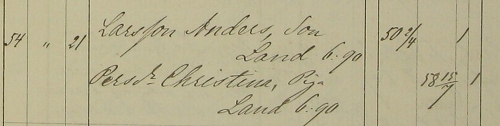 54 " 21 Larsson Anders, Son 50 2/4 1
Land 6.90
Persdr Christina, Piga 58 15/7 1
Land 6.90